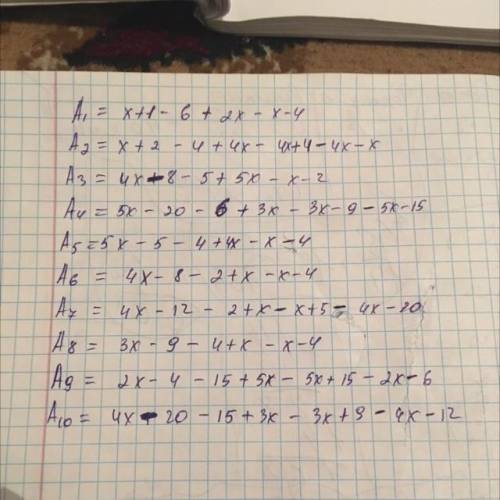 A₁ = x+1 - 6 + 2x - x - 4
A₂ = x + 2 - 4 + 4x - 4x+4 - 4x - x
A₃ = 4x - 8 - 5 + 5x - x - 2
A₄ = 5x - 20 - 6 + 3x - 3x - 9 - 5x - 15
A₅ = 5x - 5 - 4 + 4x - x - 4
A₆ = 4x - 8 - 2 + x - x - 4
A₇ = 4x - 12 - 2 + x - x + 5 - 4x - 20
A₈ = 3x - 9 - 4 + x - x - 4
A₉ = 2x - 4 - 15 + 5x - 5x + 15 - 2x - 6
A₁₀ = 4x - 20 - 15 + 3x - 3x + 9 - 4x - 12